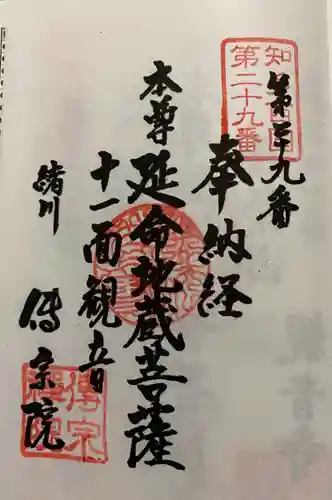 知多四国
第二十九番
第二十九番
奉納経
本尊
延命地蔵菩薩
十一面観音
緒川
傳宗院
傳宗
禅院